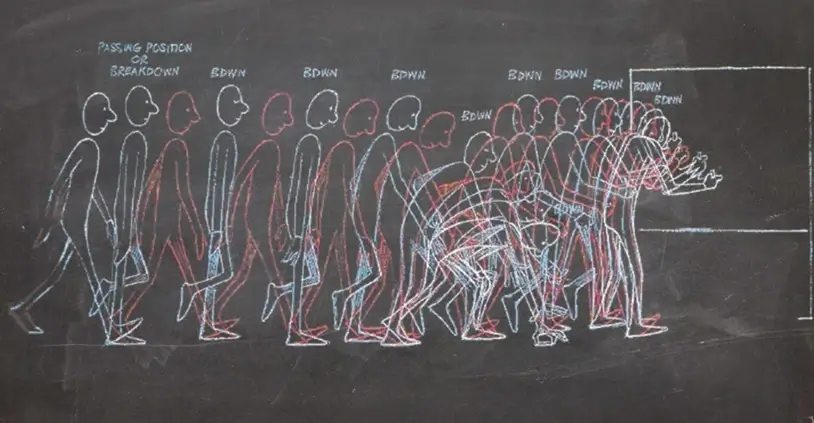 PASSING POSITION
OR
BREAKDOWN
BDWN
BDWN
BDWN
BDWN
BDWN
BDWN
BDWN
BDWN
BDWN
BDWN